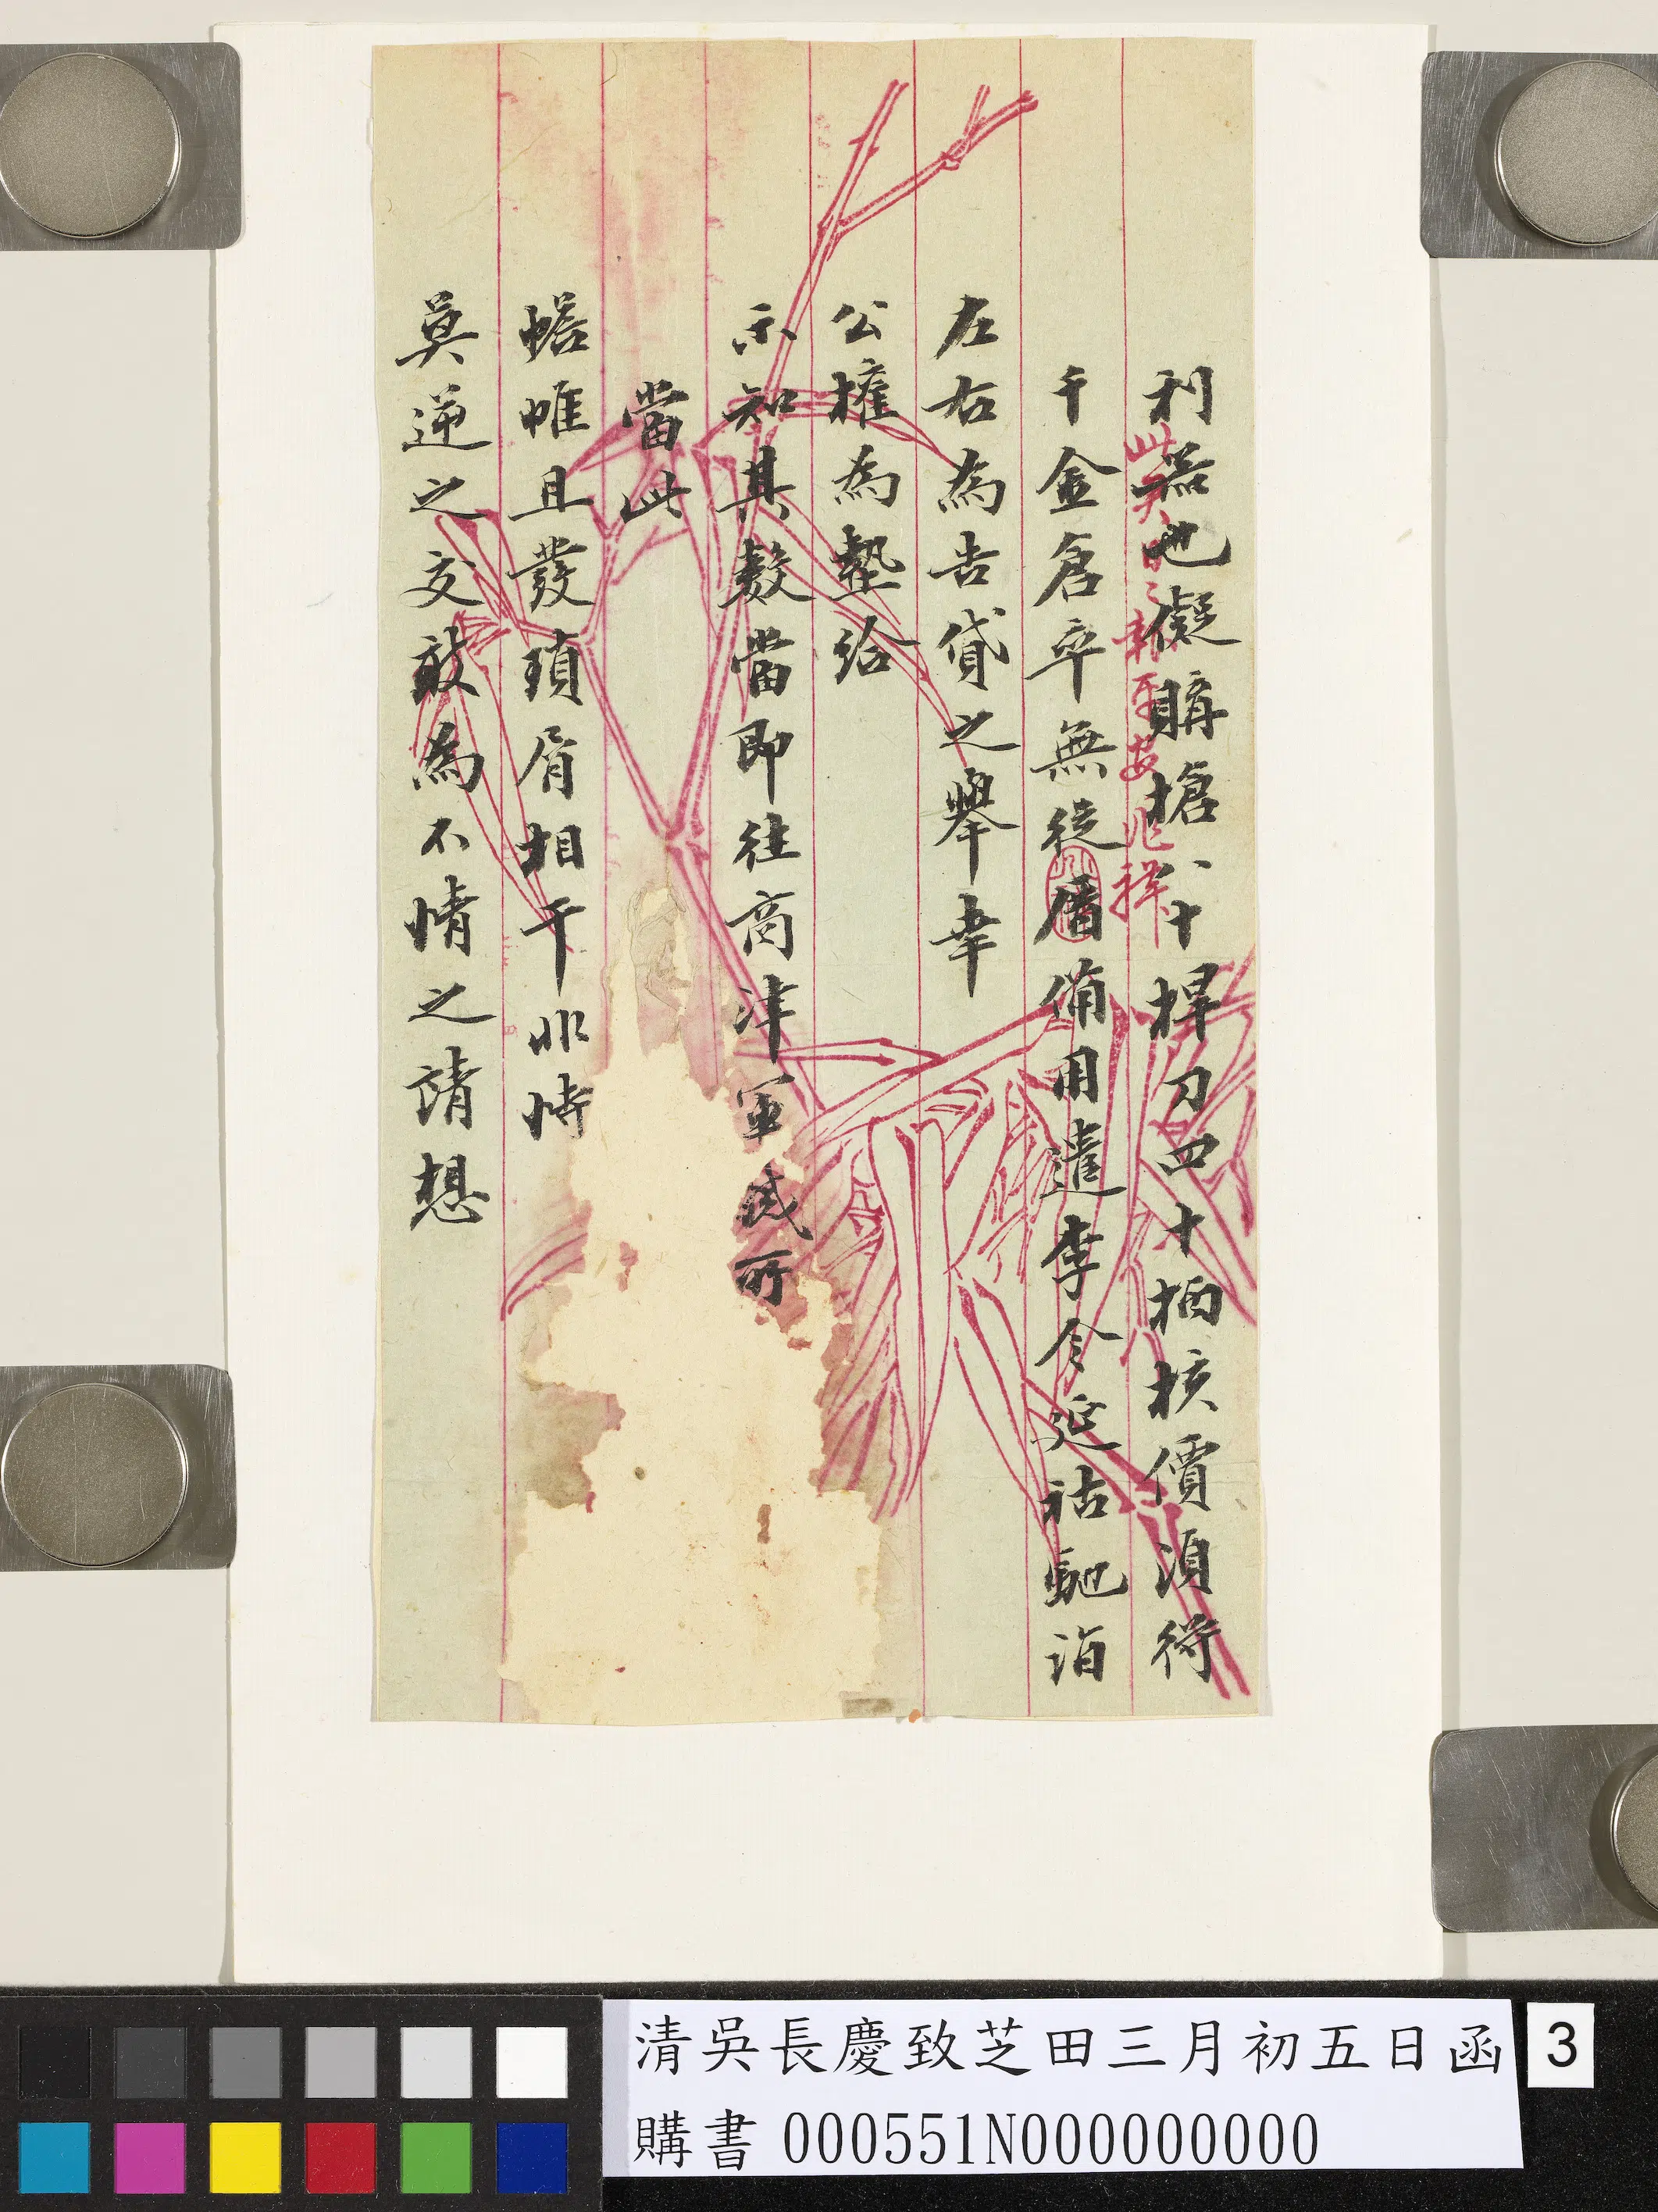 利器也擬購槍八十桿刀四十柄核價須得
千金倉卒無從厝備用遣李令延祜馳詣
左右為告貸之舉幸
公權為墊給
示知其數當即往商津軍械所
當此
幨帷且發瑣屑相干非時
莫逆之交敢為不情之請想
報平安兆祥
清吳長慶致芝田三月初五日函
購書 000551N000000000
3